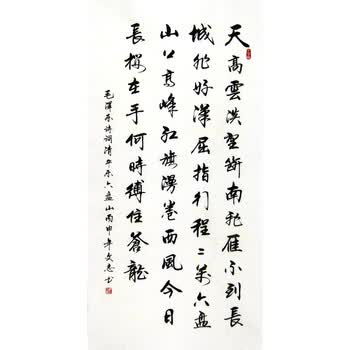 天高雲淡望斷南飛雁不到長
城非好漢屈指行程二萬六盤
山上高峰紅旗漫卷西風今日
長纓在手何時縛住蒼龍
毛澤東詩詞清平樂六盤山丙申年文志书